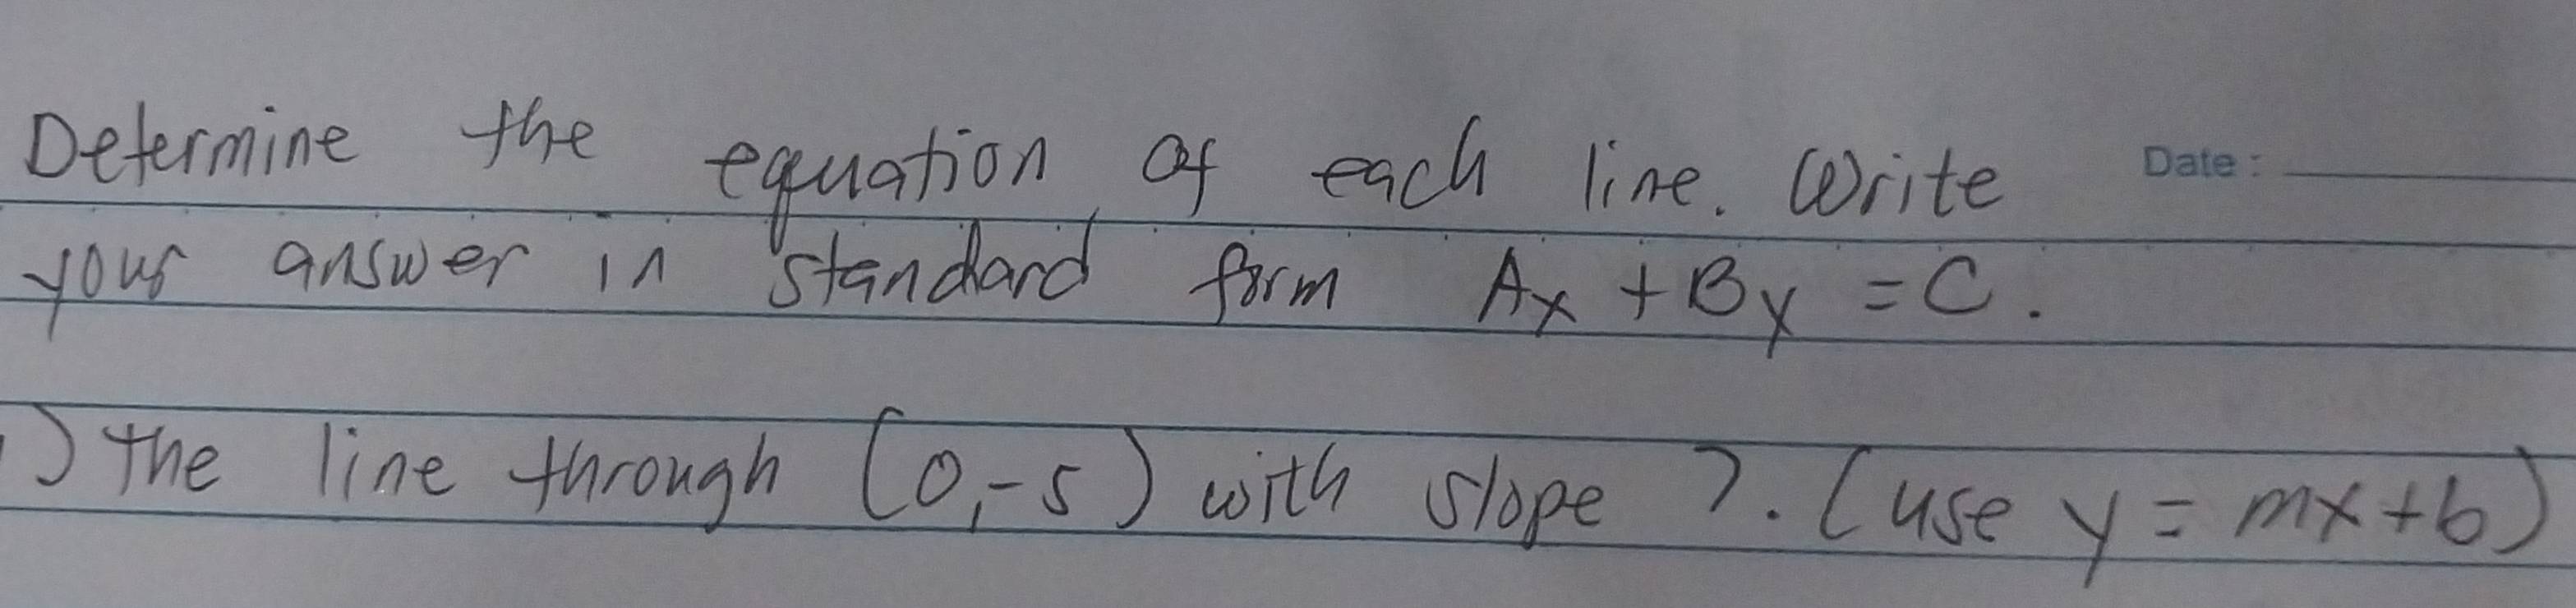 Determine the equation of each line. Write
Date :
your answer in standard form Ax + By = C.
) the line through (0,-5) with slope 7. (use y = mx+b)